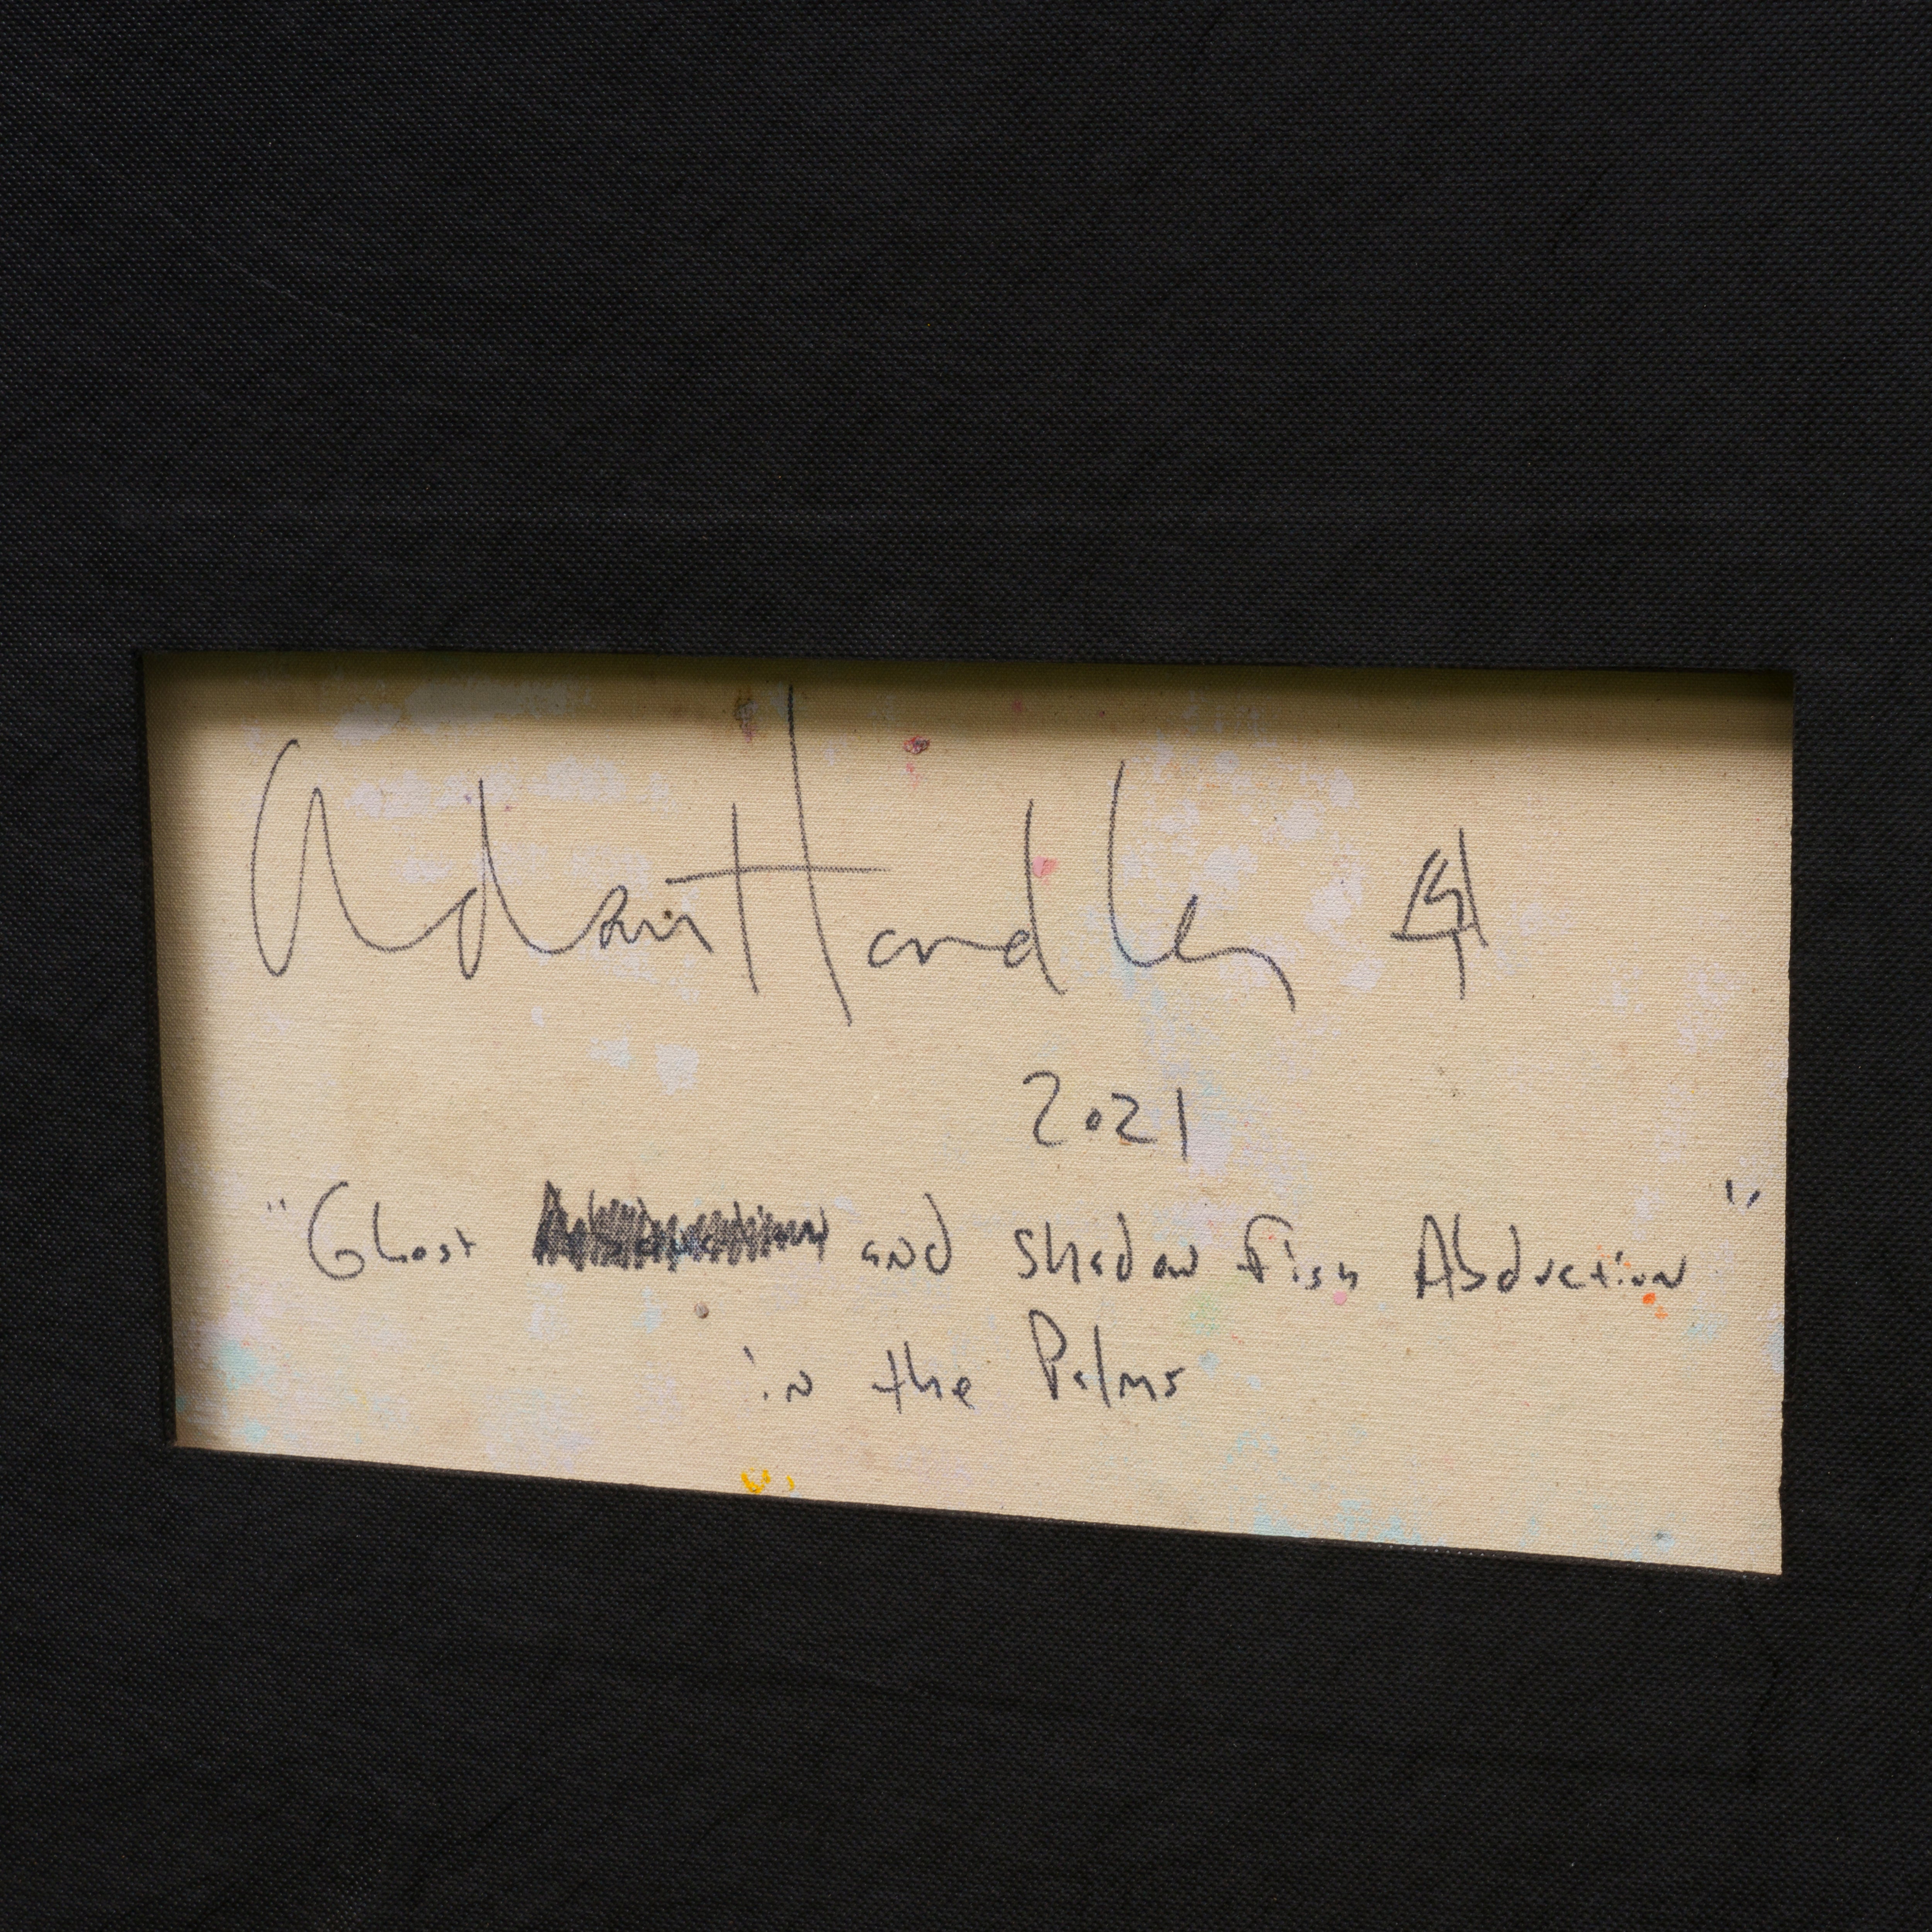 Adam Handler
2021
"Ghost and Shadow Fish Abduction"
in the Palms